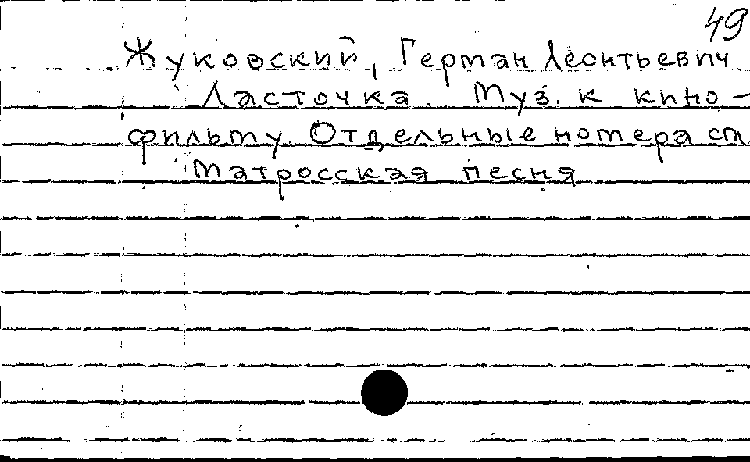 49
Жуковский, Герман Леонтьевич
Ласточка. Муз. к кино-
фильму. Отдельные номера ст
Матросская песня